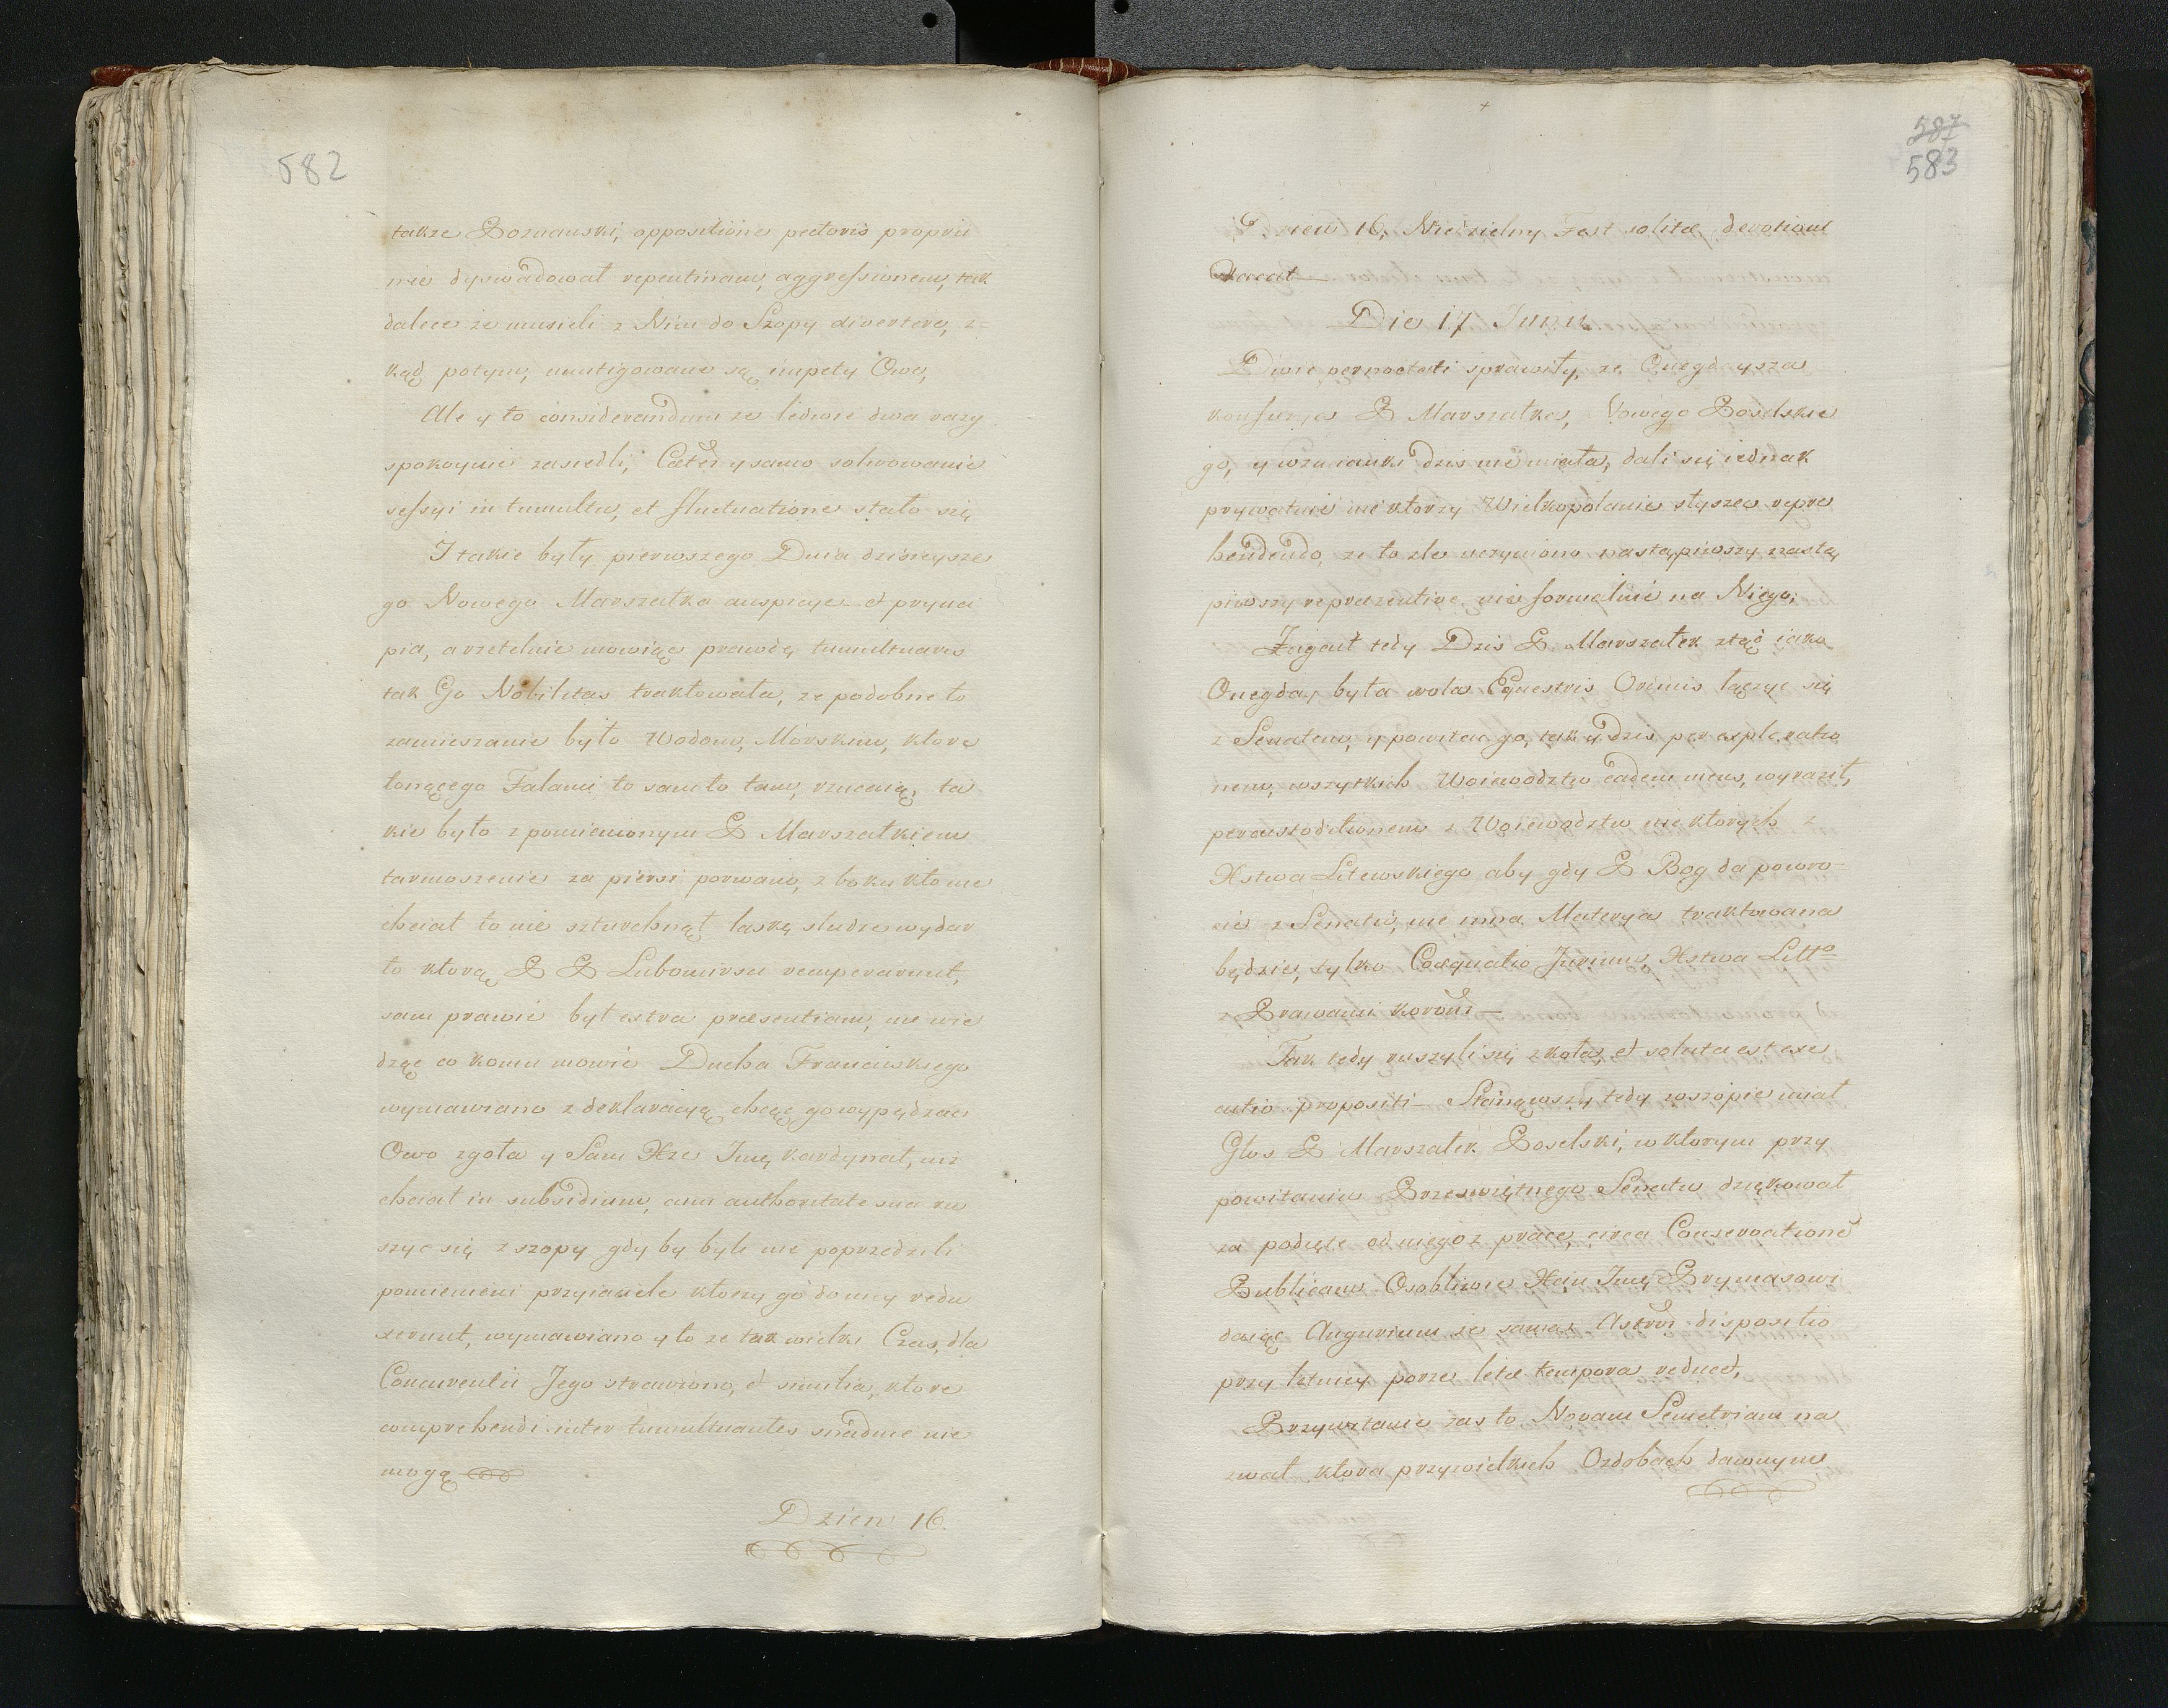 582
takze Poznanski, oppositione pectoris proprii
nie dyswadował repentinam, aggressionem, tak
dalece ze musieli z Nim do Szopy divertere, z=
kąd potym, mitigowane są impety Owe,
Ale y to considerandum ze ledwie dwa razy
spokoynie zasiedli, Cæter y samo solwowanie
sessyi in tumultu, et fluctuatione stało się
I takie były pierwszego Dnia dzisieysze
go Nowego Marszałka auspicye et prynci
pia, a rzetelnie mowiąc prawdę tumultuaries
tak Go Nobilitas traktowała, ze podobne to
zamieszanie było Wodom, Morskim, ktore
tonącego Falami to sam to tam, rzucaią, ta
kie było z pomienionym P Marszałkiem
tarmoszenie za piersi porwano, z boku kto nie
chciał to nie szturchnął laskę studze wydar
to ktorą P P Lubomirscy recuperarunt,
sam prawie był extra præsentiam, nie wie
dząc co komu mowić Ducha Francuskiego
wymawiano z deklaracyą chcąc go wypędzać
Owo zgoła y Sam Xże Jmę Kardynał, iuz
chciał in subsidium, cum authoritate sua ru
szyc się z szopy gdy by byli nie poprzedzili
pomienieni przyiaciele ktorzy go do niey redu
xerunt, wymawiano y to ze tak wielki Czas, dla
Concurentii Jego strawiono, et similia, ktore
comprehendi inter tumultuantes snadnie nie
mogą
Dzien 16.
587
583
Dzien 16, Niedzielny Fest solitæ devotioni
vacat
Die 17 Junii
Dwie pernoctati sprawiły, ze Onegdaysza
konfuzya P Marszałka, Nowego Poselskie
go, y wzmianki dzis nie miała, dali się iednak
prywatnie niektorzy Wielkopolanie słyszec repre
hendendo, ze to zle uczyniono nastąpiwszy nastą
piwszy repræzentive nie formalnie na Niego;
Zagaił tedy Dzis P Marszałek ztąd iako
Onegday była wola Equestris Ordinis łączyc się
z Senatem, y powitac go, tak y dzis per exploratio
nem, wszytkich Woiewodztw eadem mens, wyraził,
per conditionem z Woiewodztw niektorych z
Xstwa Litewskiego aby gdy P Bog da powro=
cic z Senatu, nie inna Materya traktowana
będzie, tylko Coæquatio Jurium, Xstwa Litto
z Prawami koron
Tak tedy ruszyli się z koła, et soluta est exe
cutio propositi Stanąwszy tedy w szopie miał
Głos P Marszałek Poselski, w ktorym przy
powitaniu Przeswiętnego Senatu dziękował
za podięte od niegoz prace, circa Conservationē
Publicam Osobliwie Xciu Jmę Prymasowi
daiąc Augurium ze sama Astrorū dispositio
przy letniey porze letæ tempora reducet,
Przywitanie zas to Novam Simetriam na
zwał ktora przy wielkich Ozdobach dawnym